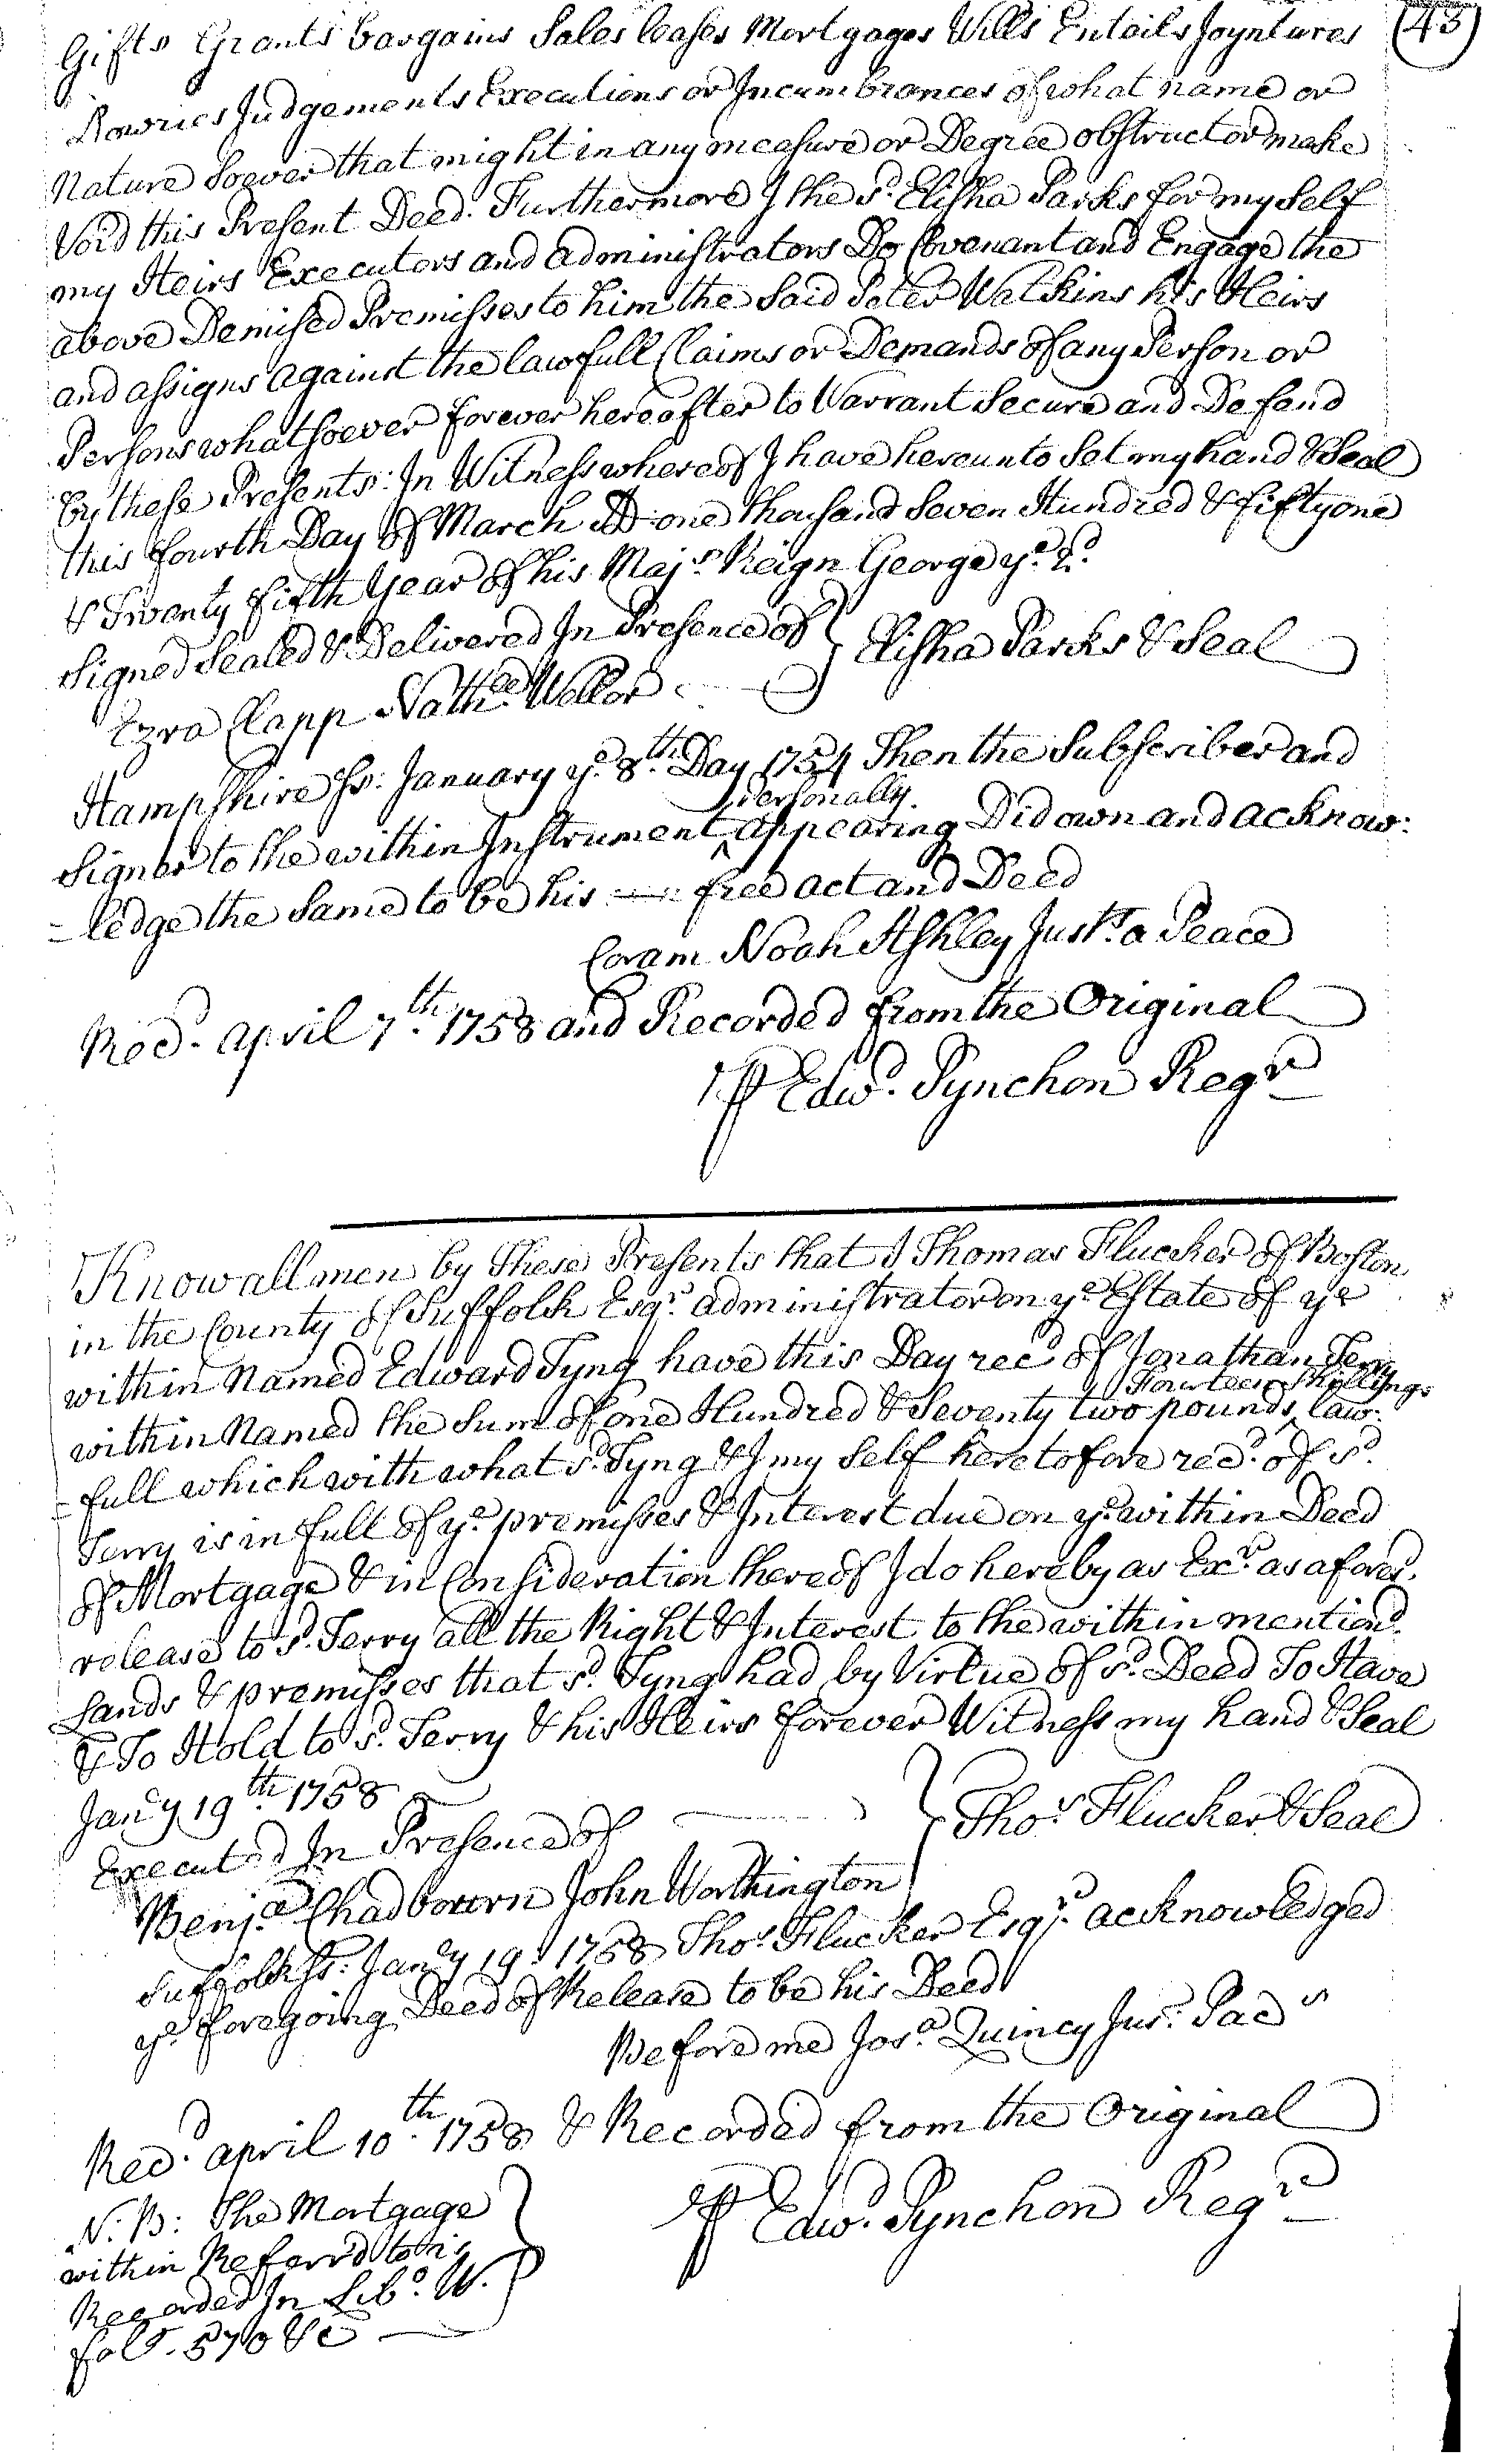 (43)
Gifts Grants bargains Sales leases Mortgages Wills Entails Joyntures
Dowries Judgements Executions or Incumbrances of what name or
Nature Soever that might in any measure or Degree obstruct or make
Void this Present Deed. Furthermore I the sd. Elisha Parks for my Self
my Heirs Executors and administrators Do Covenant and Engage the
above Demised Premisses to him the Said Peter Watkins his Heirs
and assigns against the lawfull Claims or Demands of any Person or
Persons whatsoever forever hereafter to Warrant Secure and Defend
by these Presents: In Witness whereof I have hereunto Set my hand & Seal
this fourth Day of March AD one thousand Seven Hundred & fifty one
& Twenty fifth Year of his Majs. Reign George ye. 2d.
Signed Sealed & Delivered In Presence of } Elisha Parks & Seal
Ezra Clapp Nathll. Weller
Hampshire ss: January ye. 8th. Day 1754 Then the Subscriber and
Signer to the within Instrument ^ personally appearing Did own and acknow:
=ledge the Same to be his — free act and Deed
Coram Noah Ashley Just: a Peace
Recd. april 7th. 1758 and Recorded from the Original
⅌ Edwd. Pynchon Regr
Know all men by These Presents that I Thomas Flucker of Boston
in the County of Suffolk Esqr. administrator on ye Estate of ye
within Named Edward Tyng have this Day recd of Jonathan Terry
within Named the Sum of one Hundred & Seventy two pounds ^ Fourteen Shillings law:
=full which with what sd. Tyng & I my Self heretofore recd. of sd.
Terry is in full of ye. premisses & Interest due on ye. within Deed
of Mortgage & in Consideration thereof I do hereby as Exr. as afores.
release to sd. Terry all the Right & Interest to the within mentiond.
Lands & premisses that sd. Tyng had by Virtue of sd. Deed To Have
& To Hold to sd. Terry & his Heirs forever Witness my hand & Seal
Jany 19th. 1758
Executed In Presence of } Thos. Flucker & Seal
Benja. Chadbourn John Worthington
Suffolk ss. Jany 19. 1758 Thos. Flucker Esqr. acknowledged
ye. foregoing Deed of Release to be his Deed
Before me Josa. Quincy Jus. Pacs
Recd. april 10th. 1758 & Recorded from the Original
⅌ Edwd. Pynchon Regr
N.B: The Mortgage
within Referrd to is
Recorded In Libo. W.
fol. 570 &c